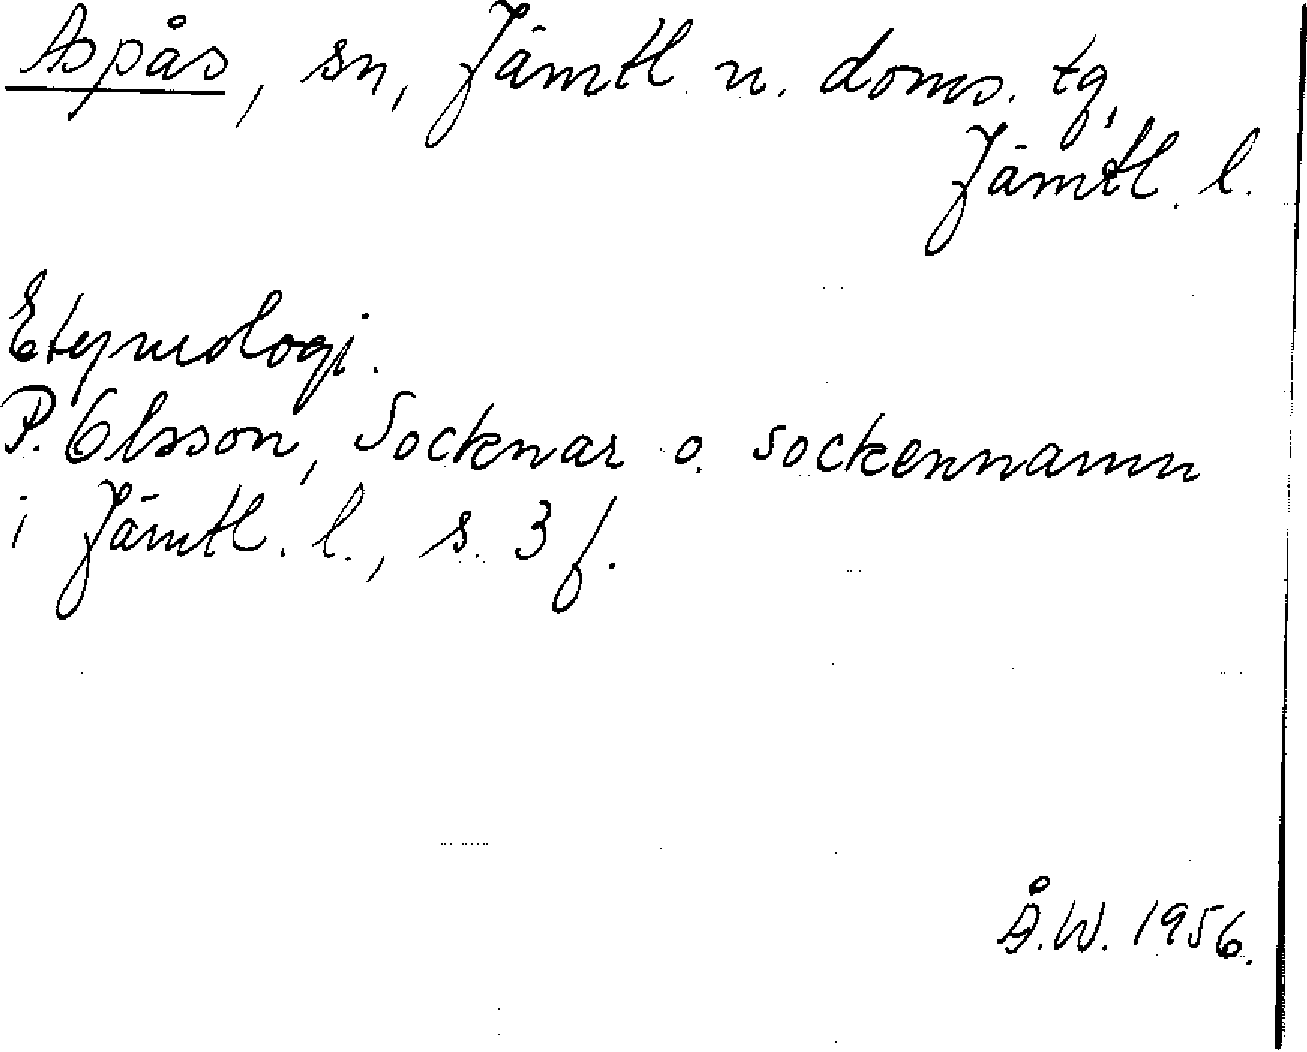 Aspås, sn, Jämtl. n. doms. tg,
Jämtl. l.
Etymologi.
P. Olsson, Socknar o. sockennamn
i Jämtl. l., s. 3 f.
Å.W. 1956.